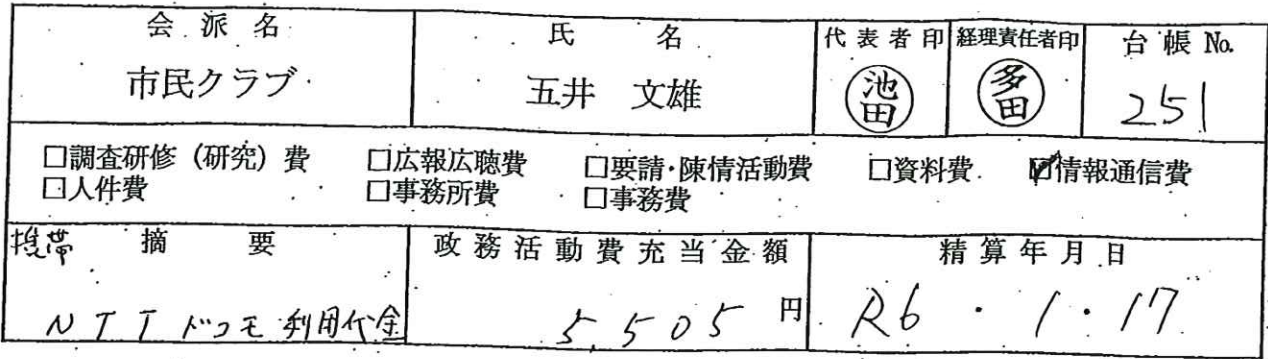 会派名 氏名 代表者印 経理責任者印 台帳No.
市民クラブ 五井 文雄 池田 多田 251
□調査研修（研究）費 □広報広聴費 □要請・陳情活動費 □資料費 ☑情報通信費
□人件費 □事務所費 □事務費
携帯 摘要 政務活動費充当金額 精算年月日
NTTドコモ利用代金 5,505円 R6・1・17